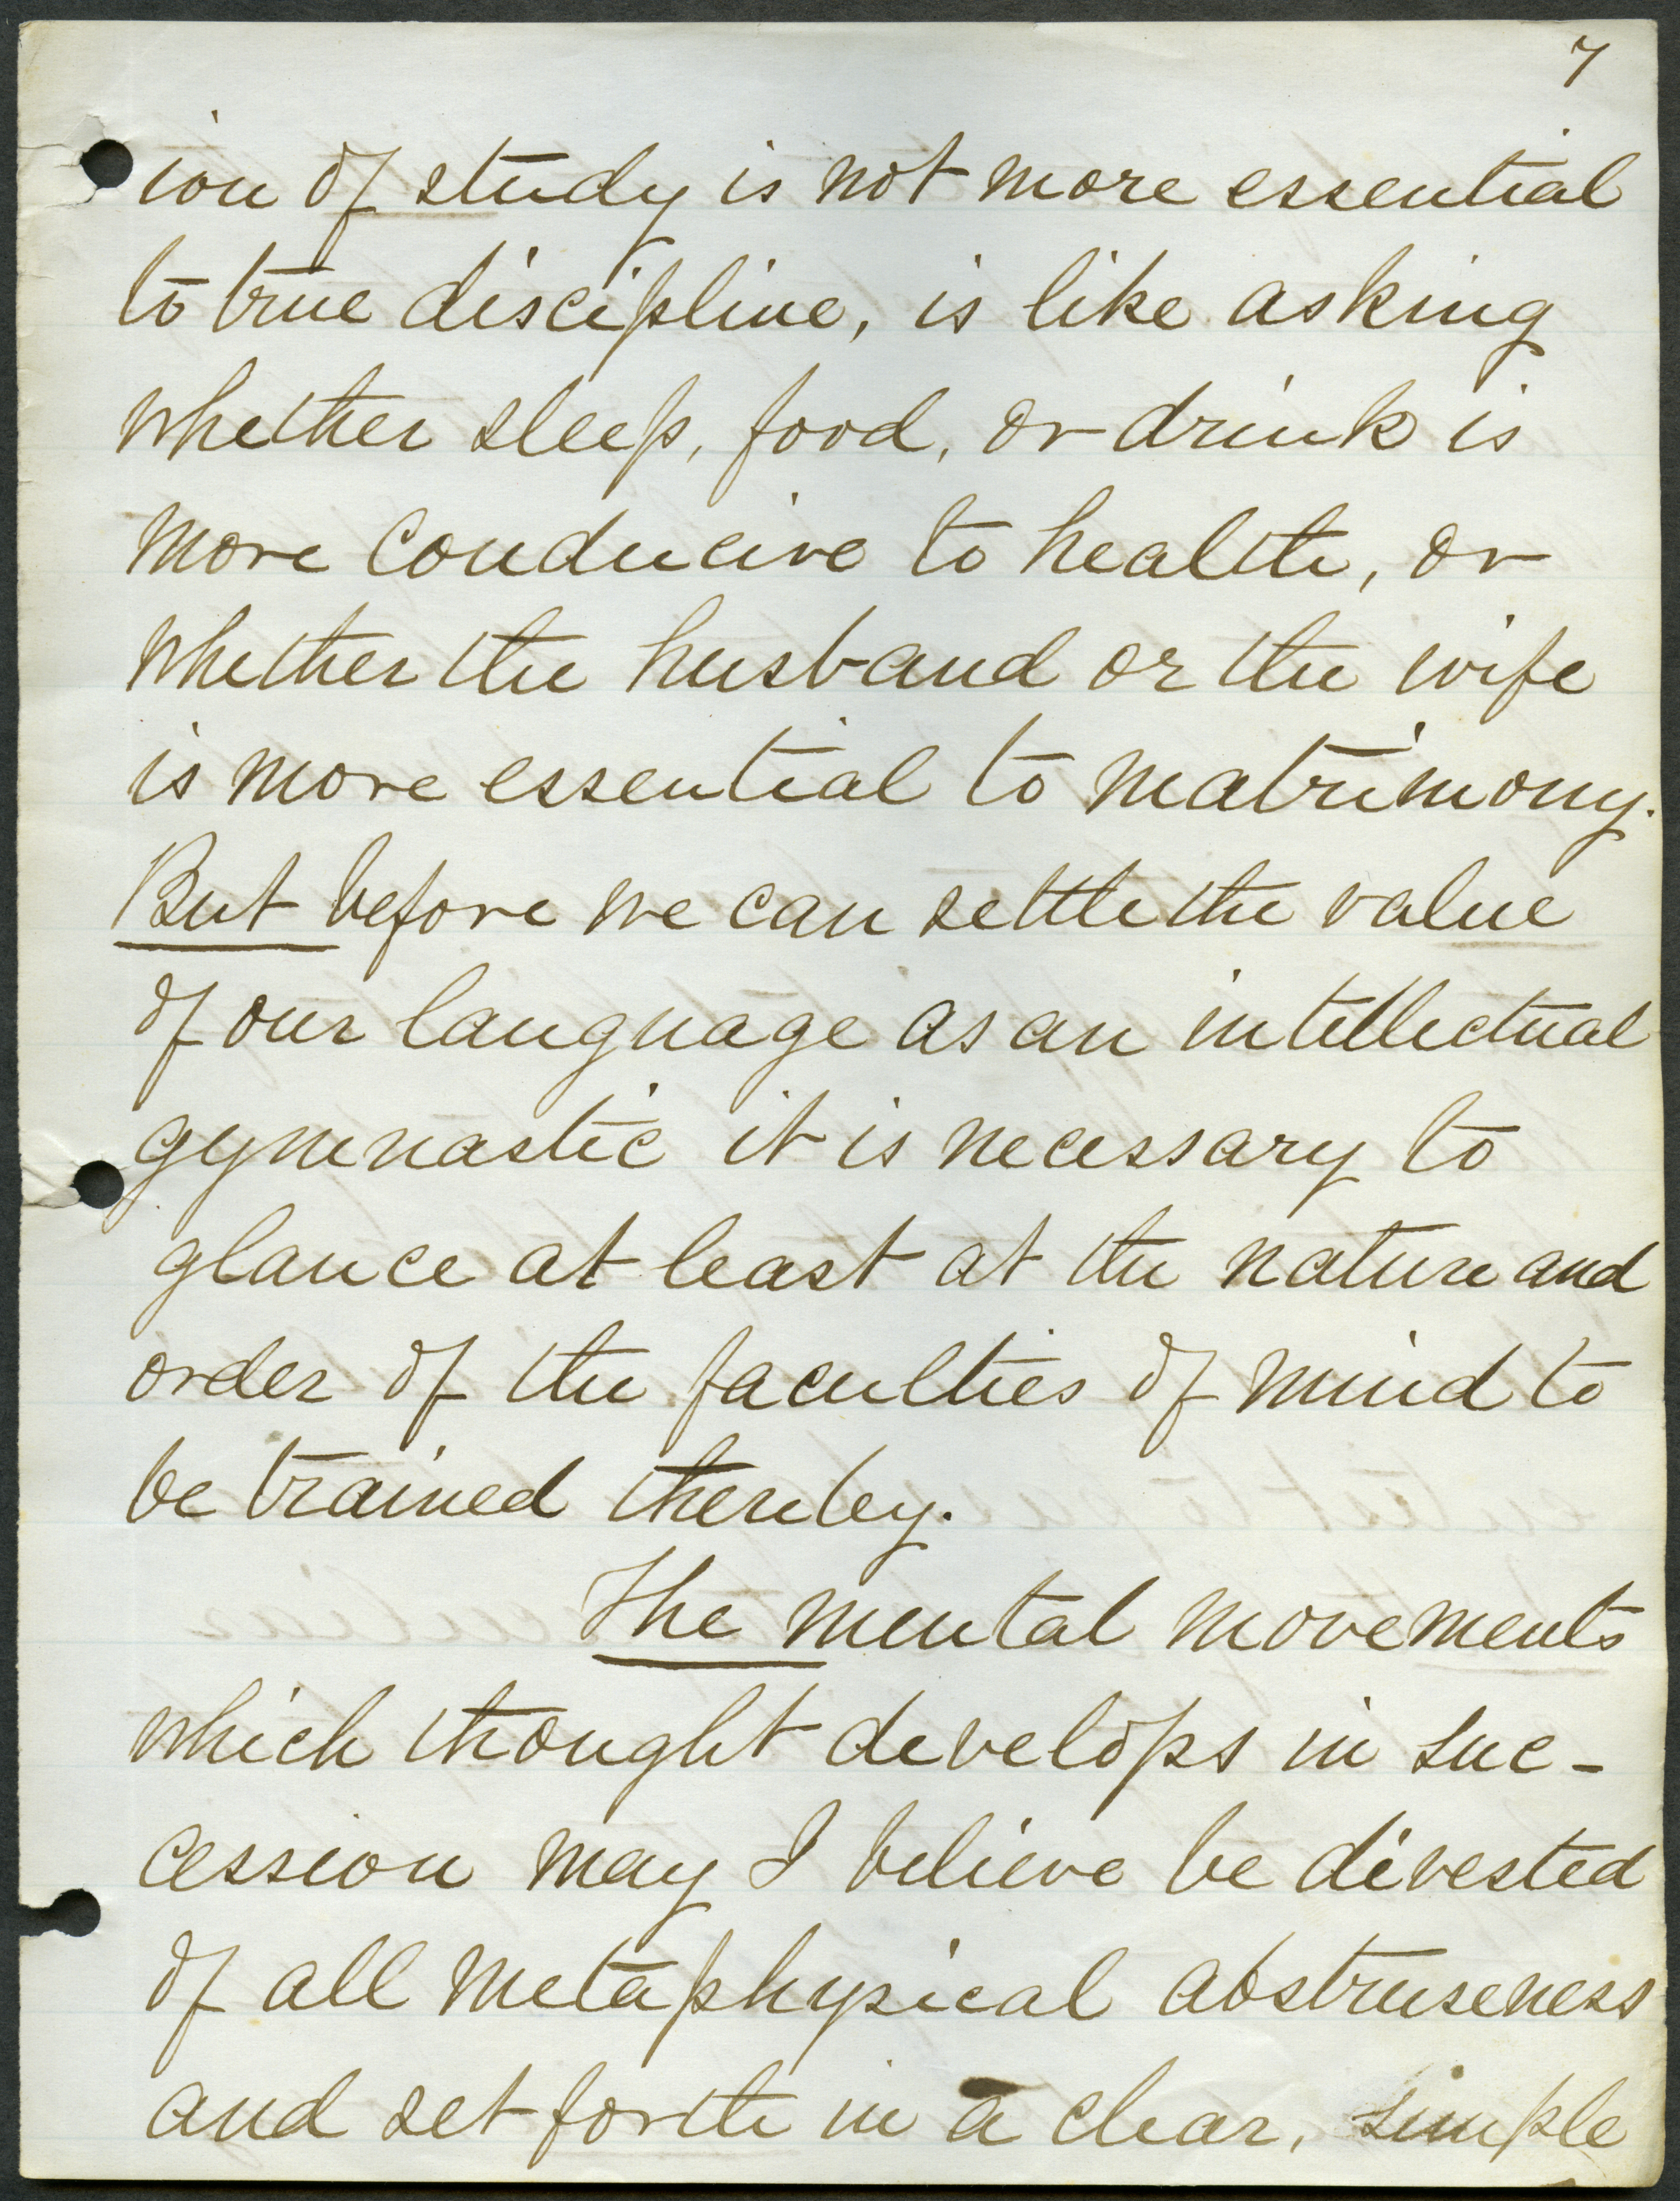 7
ion of study is not more essential
to true discipline, is like asking
whether sleep, food, or drink is
more conducive to health, or
whether the husband or the wife
is more essential to matrimony.
But before we can settle the value
of our language as an intellectual
gymnastic it is necessary to
glance at least at the nature and
order of the faculties of mind to
be trained thereby.
The mental movements
which thought develops in suc-
cession may I believe be divested
of all metaphysical abstruseness
and set forth in a clear, simple